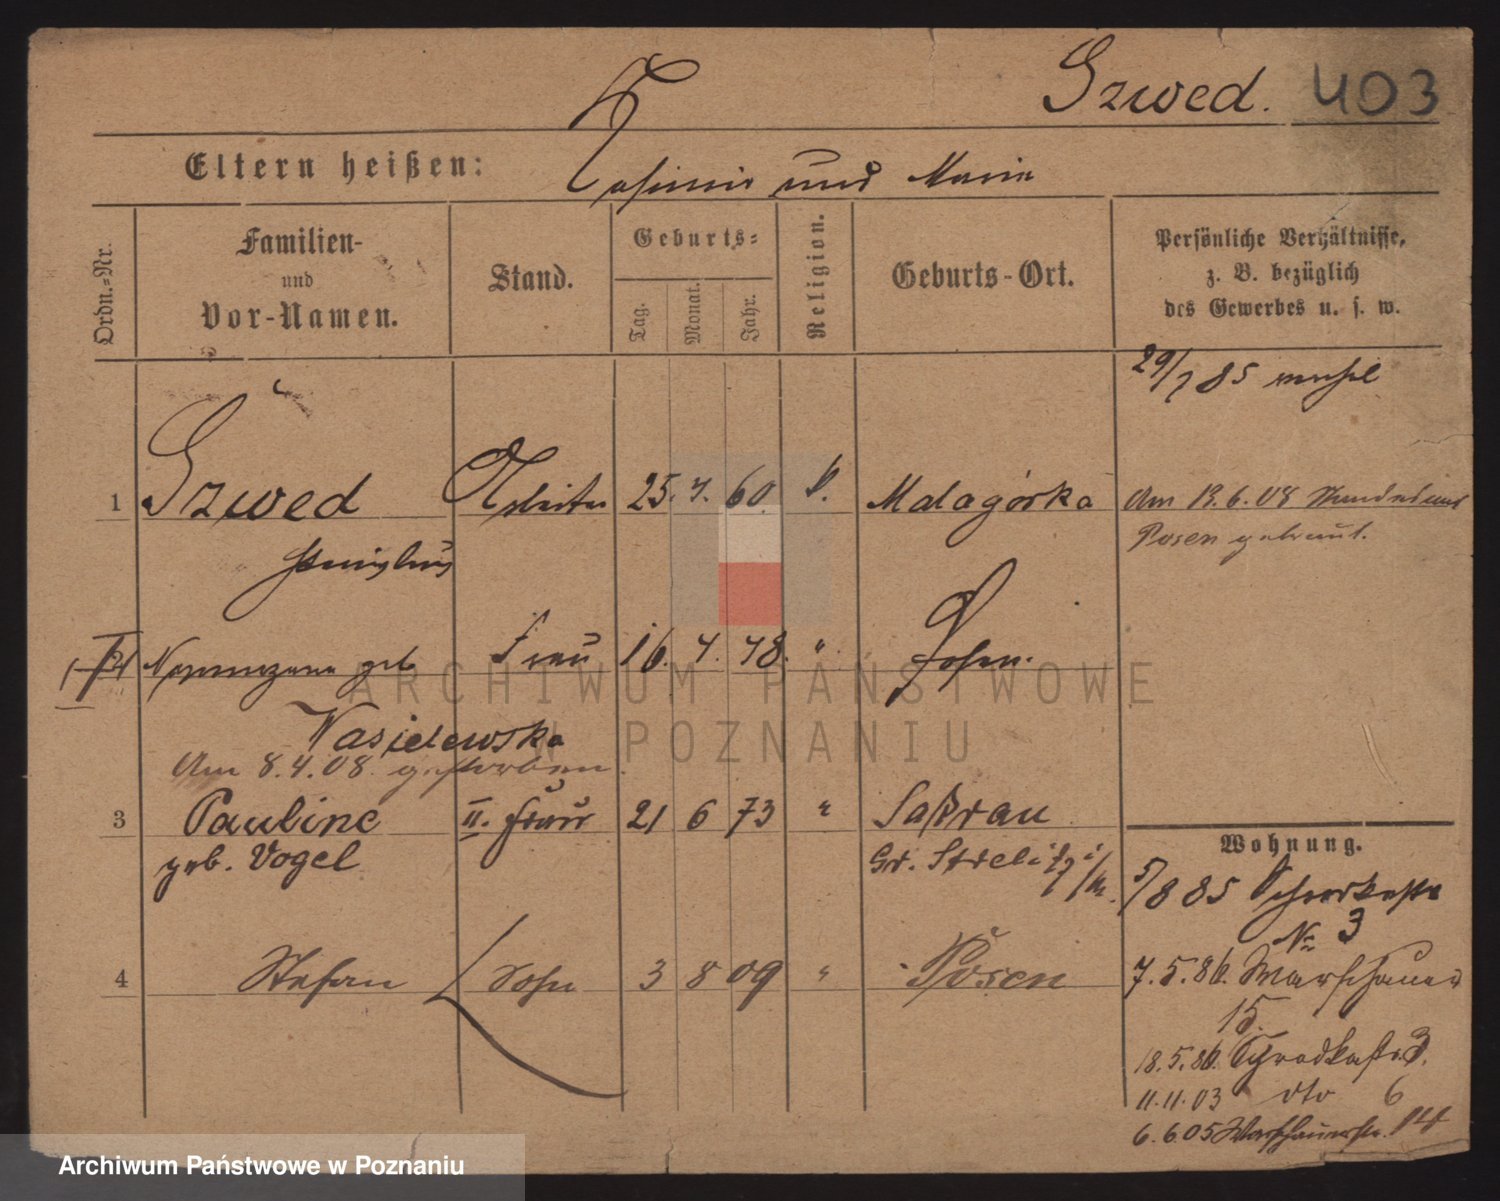 Szwed. 403
Eltern heißen: Kasimir und Marie
Ordn.-Nr.
Familien-
und
Vor-Namen.
Stand.
Geburts-
Tag.
Monat.
Jahr.
Religion.
Geburts-Ort.
Persönliche Verhältnisse,
z. B. bezüglich
des Gewerbes u. s. w.
29/7 85
1 Szwed Arbeiter 25. 4. 60. k. Malagórka Am 13.6.08 Standesamt
Stanislaus
Posen getraut.
2 geb Frau 16. 4. 48. " Posen.
Wasielewska
Am 8.4.08. gestorben.
3 Pauline II. Frau 21 6 73 " Saßrau
geb. Vogel Gr. Strelitz
4 Stefan Sohn 3 8 09 " Posen
Wohnung.
5/8 85
No 3
7.5.86. Warschauer
15.
18.5.86. 3.
11.11.03 dto 6
6.6.05 Warschauerstr. 14
ARCHIWUM PAŃSTWOWE
W POZNANIU
Archiwum Państwowe w Poznaniu